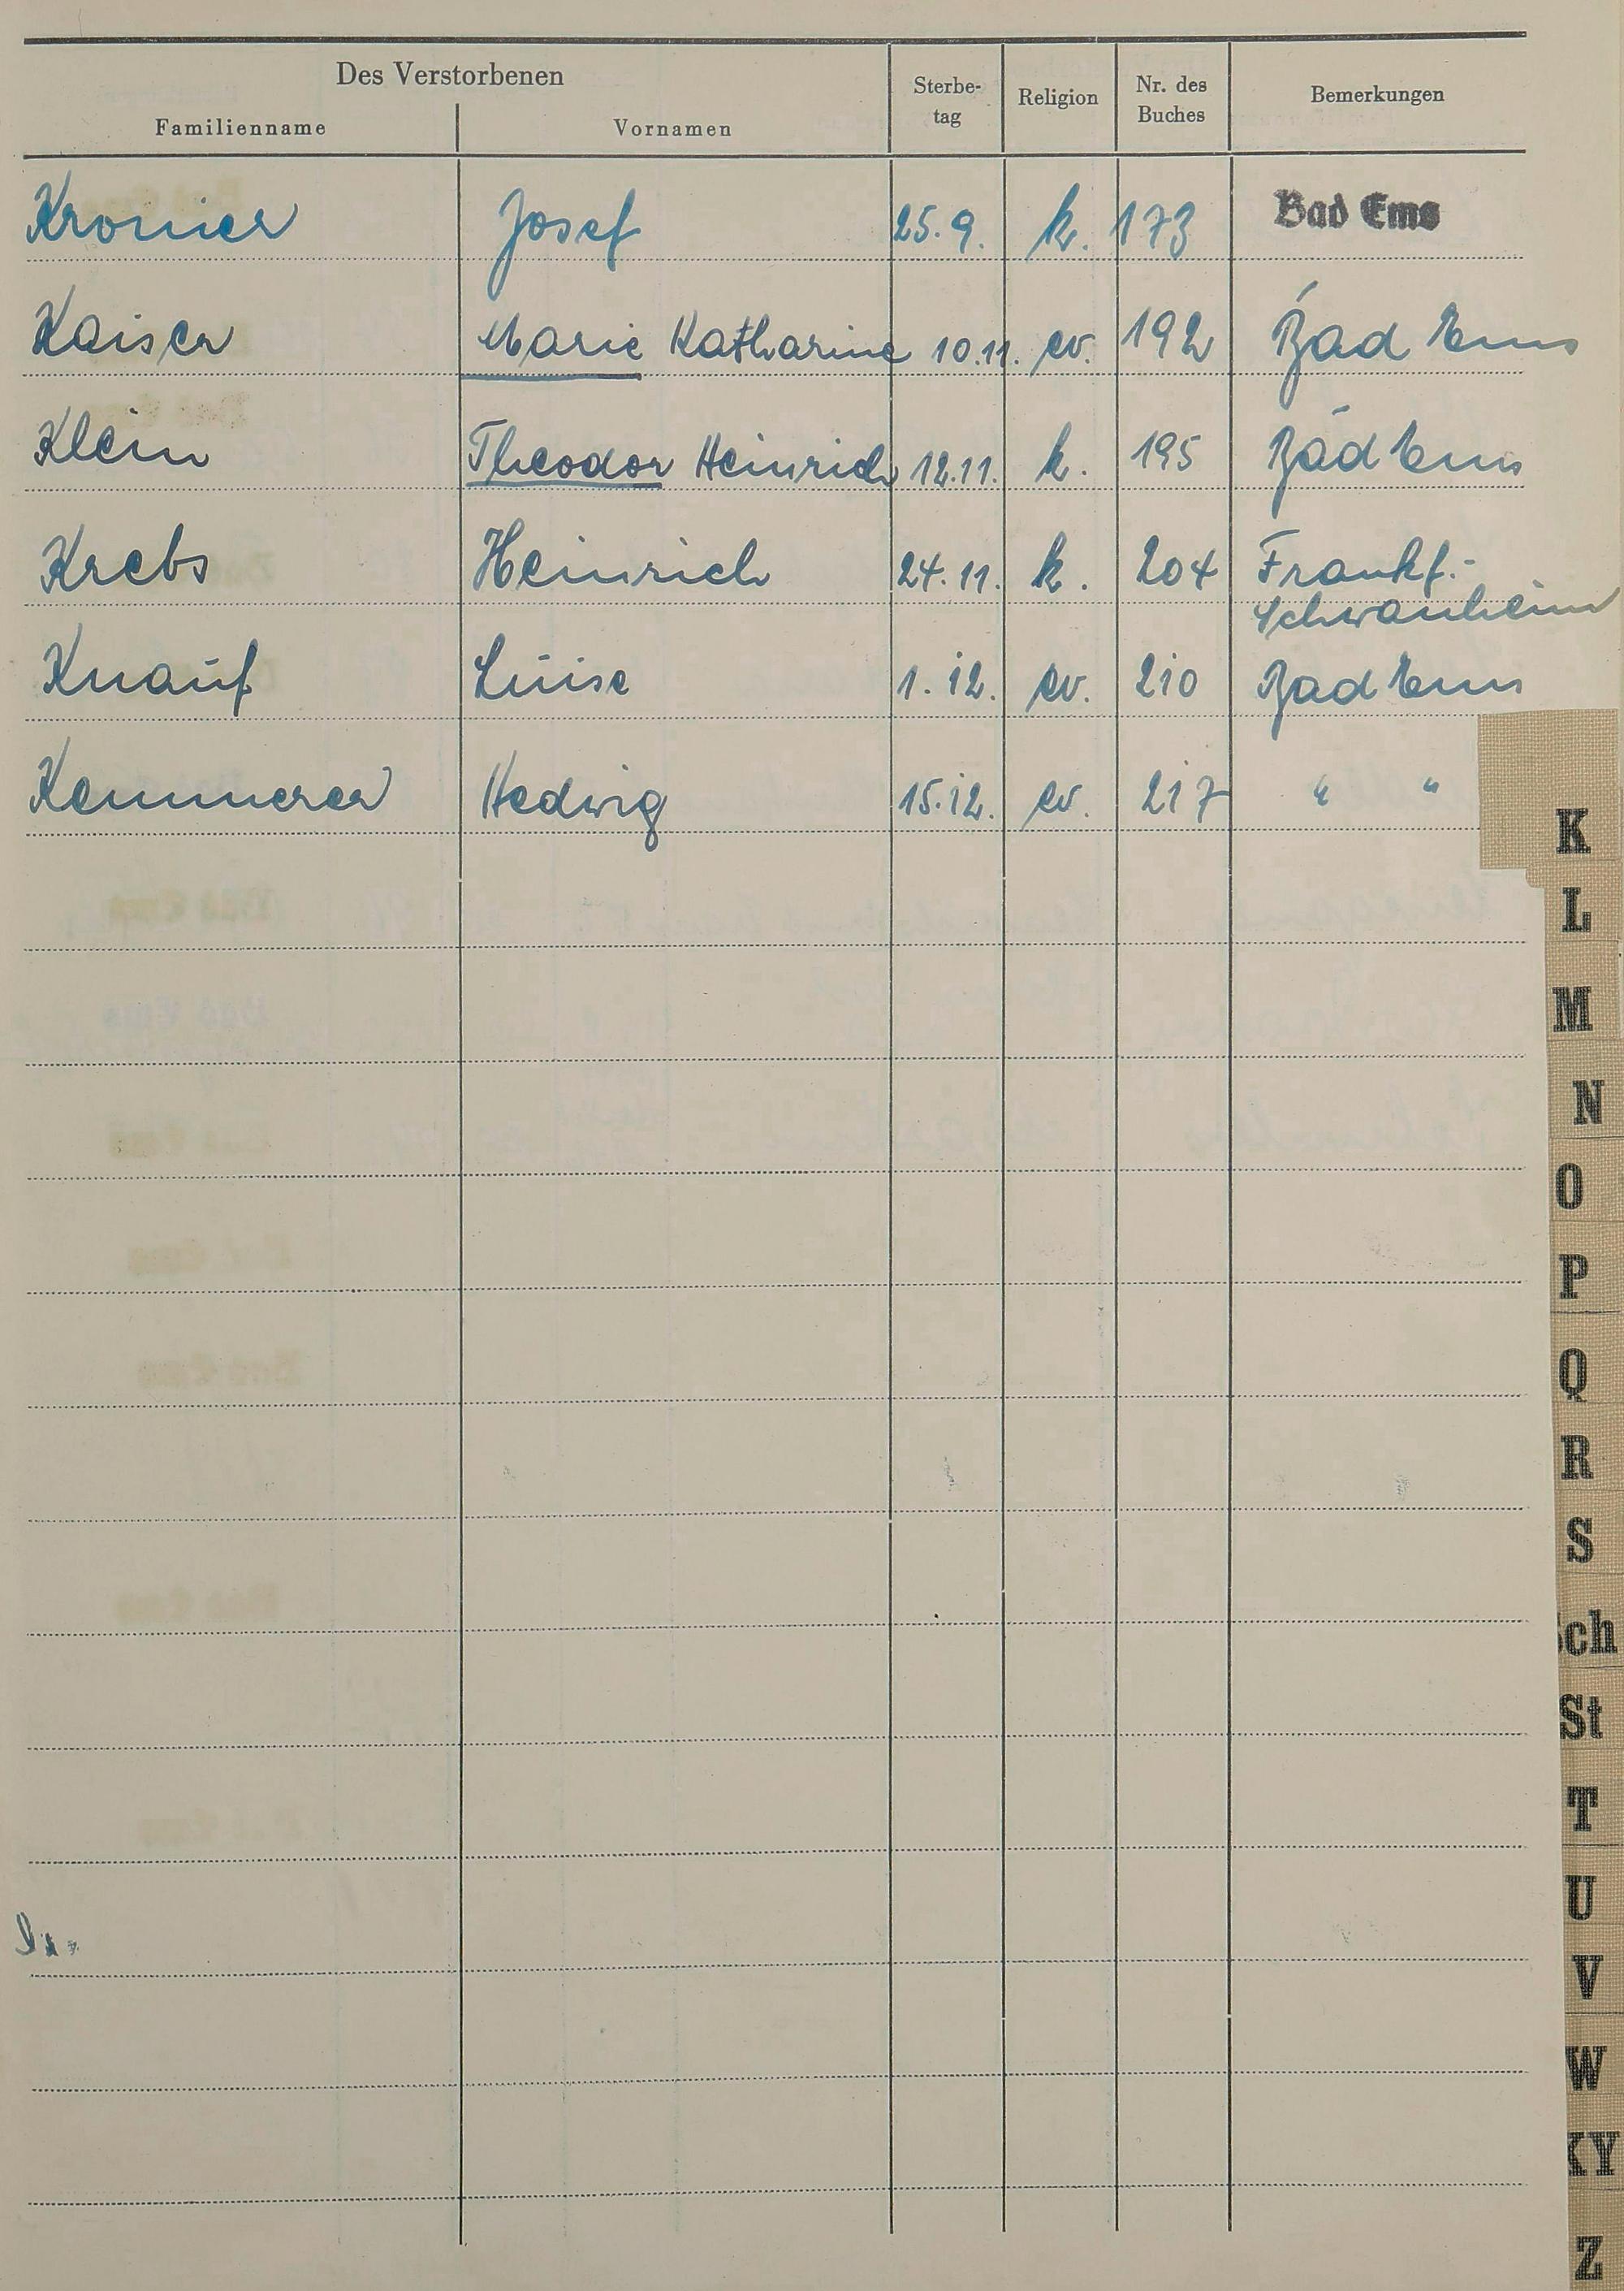 Des Verstorbenen
Familienname Vornamen Sterbe-tag Religion Nr. des Buches Bemerkungen
Kronier Josef 25.9. k. 173 Bad Ems
Kaiser Marie Katharine 10.11. ev. 192 Bad Ems
Klein Theodor Heinrich 12.11. k. 195 Bad Ems
Krebs Heinrich 24.11. k. 204 Frankf.-
Schwanheim
Knauf Luise 1.12. ev. 210 Bad Ems
Kemmerer Hedwig 15.12. ev. 217 " "
K
L
M
N
O
P
Q
R
S
Sch
St
T
U
V
W
XY
Z